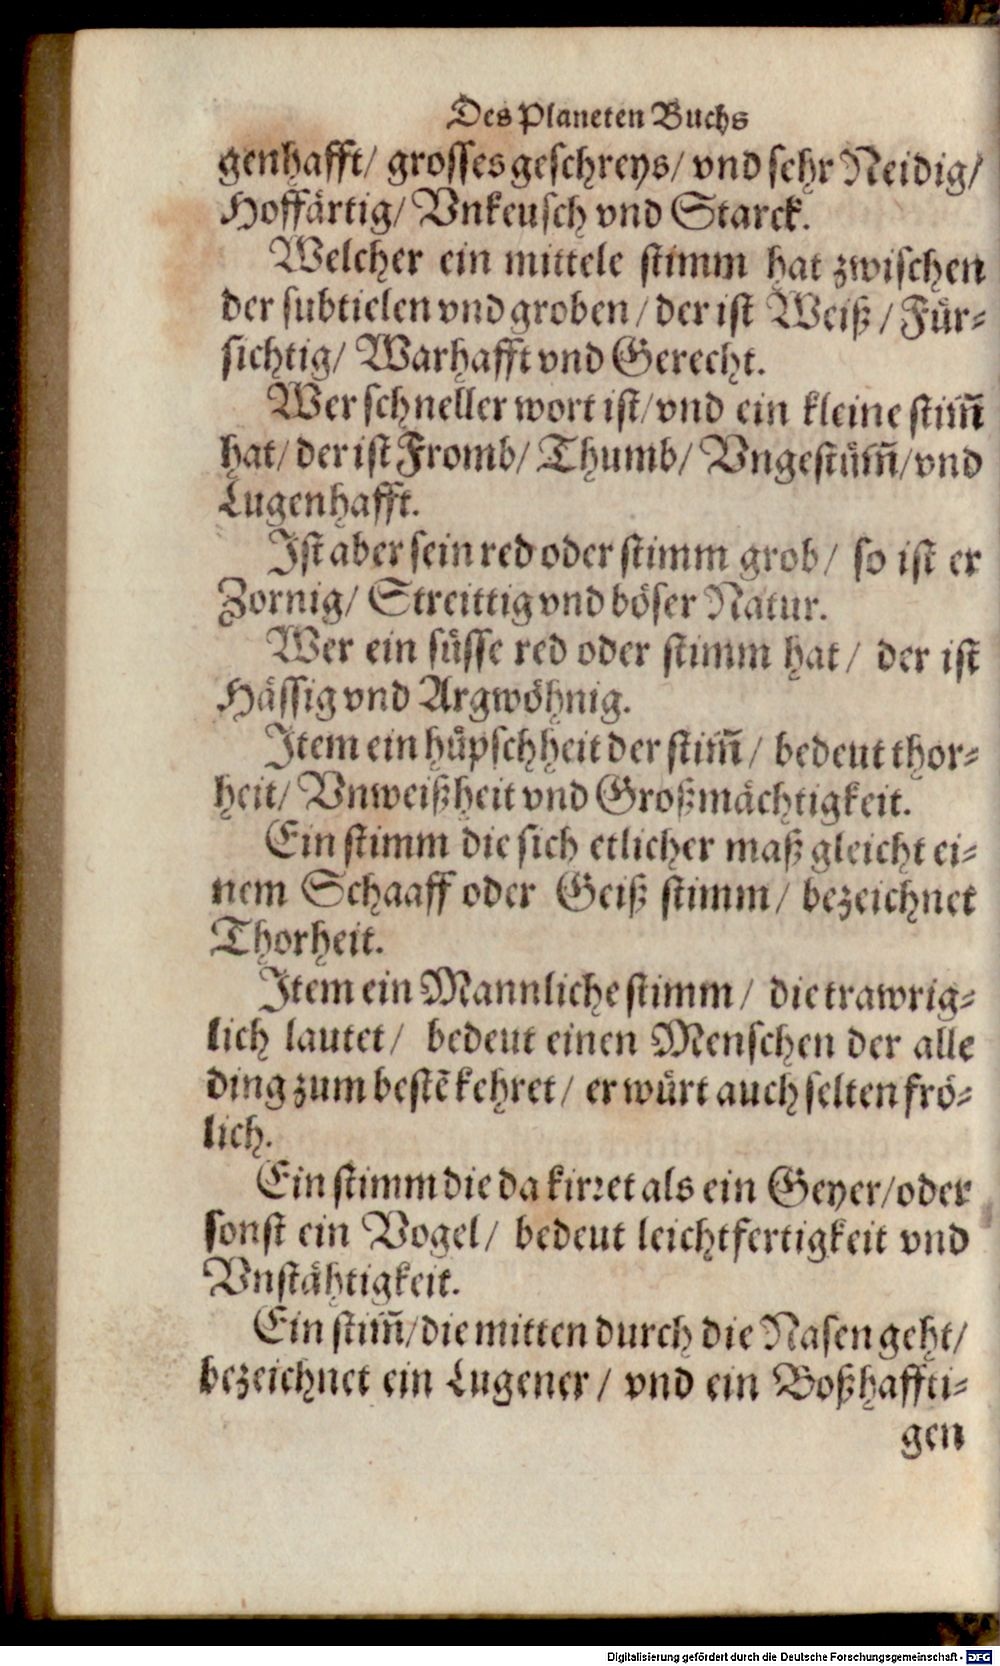 Des Planeten Buchs
genhafft/ grosses geschreys/ vnd sehr Neidig/
Hoffärtig/ Vnkeusch vnd Starck.
Welcher ein mittele stimm hat zwischen
der subtielen vnd groben / der ist Weiß / Für-
sichtig/ Warhafft vnd Gerecht.
Wer schneller wort ist/ vnd ein kleine stim̃
hat/ der ist Fromb/ Thumb/ Vngestüm̃/ vnd
Lugenhafft.
Ist aber sein red oder stimm grob/ so ist er
Zornig/ Streittig vnd böser Natur.
Wer ein süsse red oder stimm hat/ der ist
Hässig vnd Argwöhnig.
Item ein hüpschheit der stim̃/ bedeut thor-
heit/ Vnweißheit vnd Großmächtigkeit.
Ein stimm die sich etlicher maß gleicht ei-
nem Schaaff oder Geiß stimm/ bezeichnet
Thorheit.
Item ein Mannliche stimm/ die trawrig-
lich lautet/ bedeut einen Menschen der alle
ding zum bestẽ kehret/ er würt auch selten frö-
lich.
Ein stimm die da kirret als ein Geyer/ oder
sonst ein Vogel/ bedeut leichtfertigkeit vnd
Vnstähtigkeit.
Ein stim̃/ die mitten durch die Nasen geht/
bezeichnet ein Lugener/ vnd ein Boßhaffti-
gen
Digitalisierung gefördert durch die Deutsche Forschungsgemeinschaft - DFG